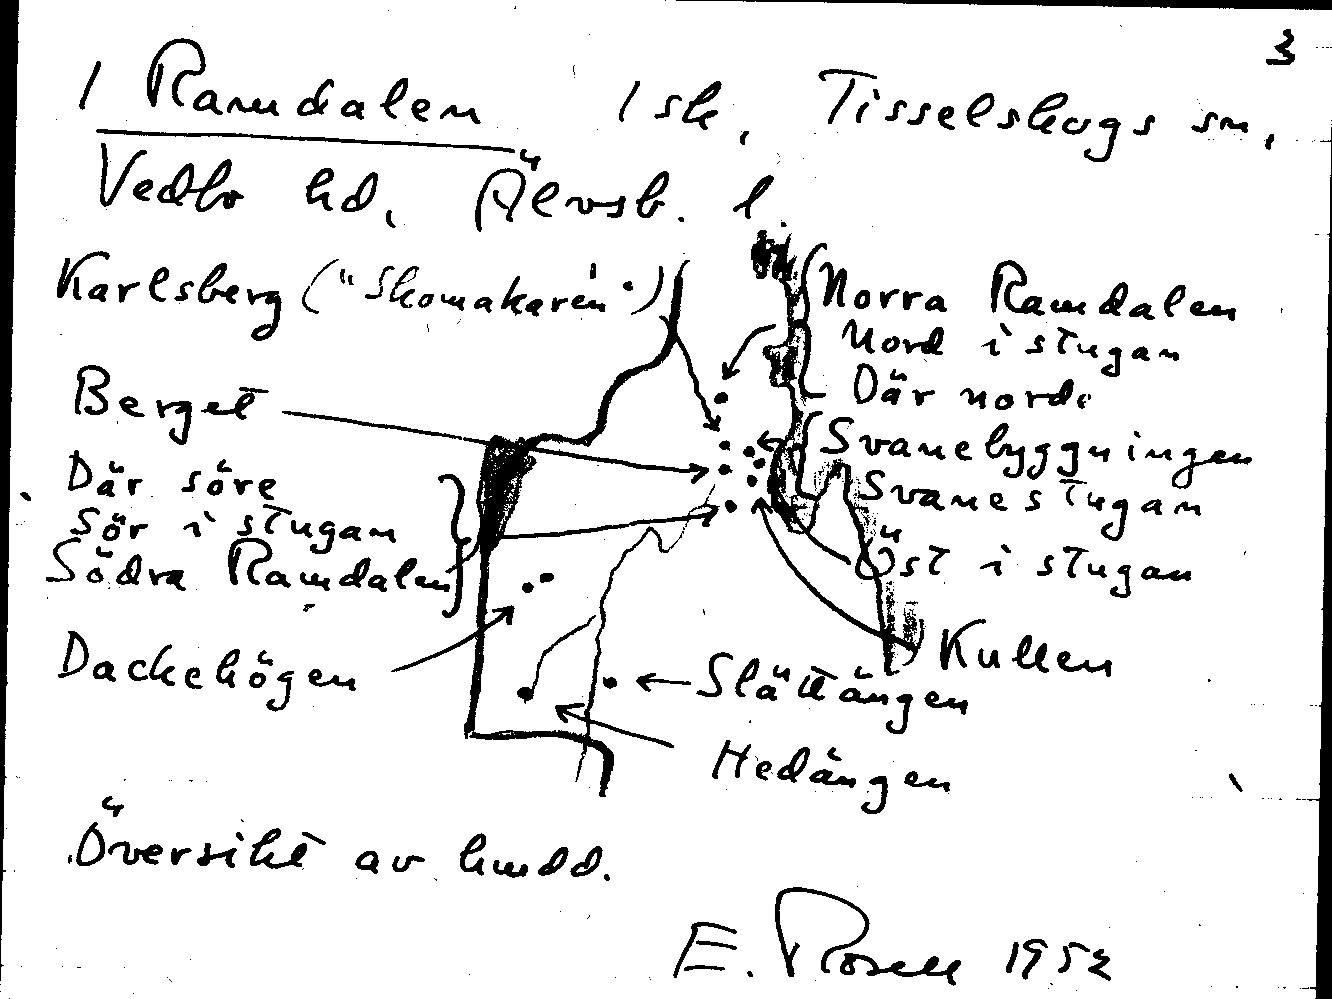 3
1 Ramdalen 1 sk, Tisselskogs sn,
Vedbo hd, Älvsb. l.
Karlsberg ("Skomakaren")
Norra Ramdalen
Nord i stugan
Där norde
Berget
Svanebyggningen
Svanestugan
Öst i stugan
Där söre
Sör i stugan
Södra Ramdalen
Kullen
Dackehögen
Slättängen
Hedängen
Översikt av
E. Rosell 1952